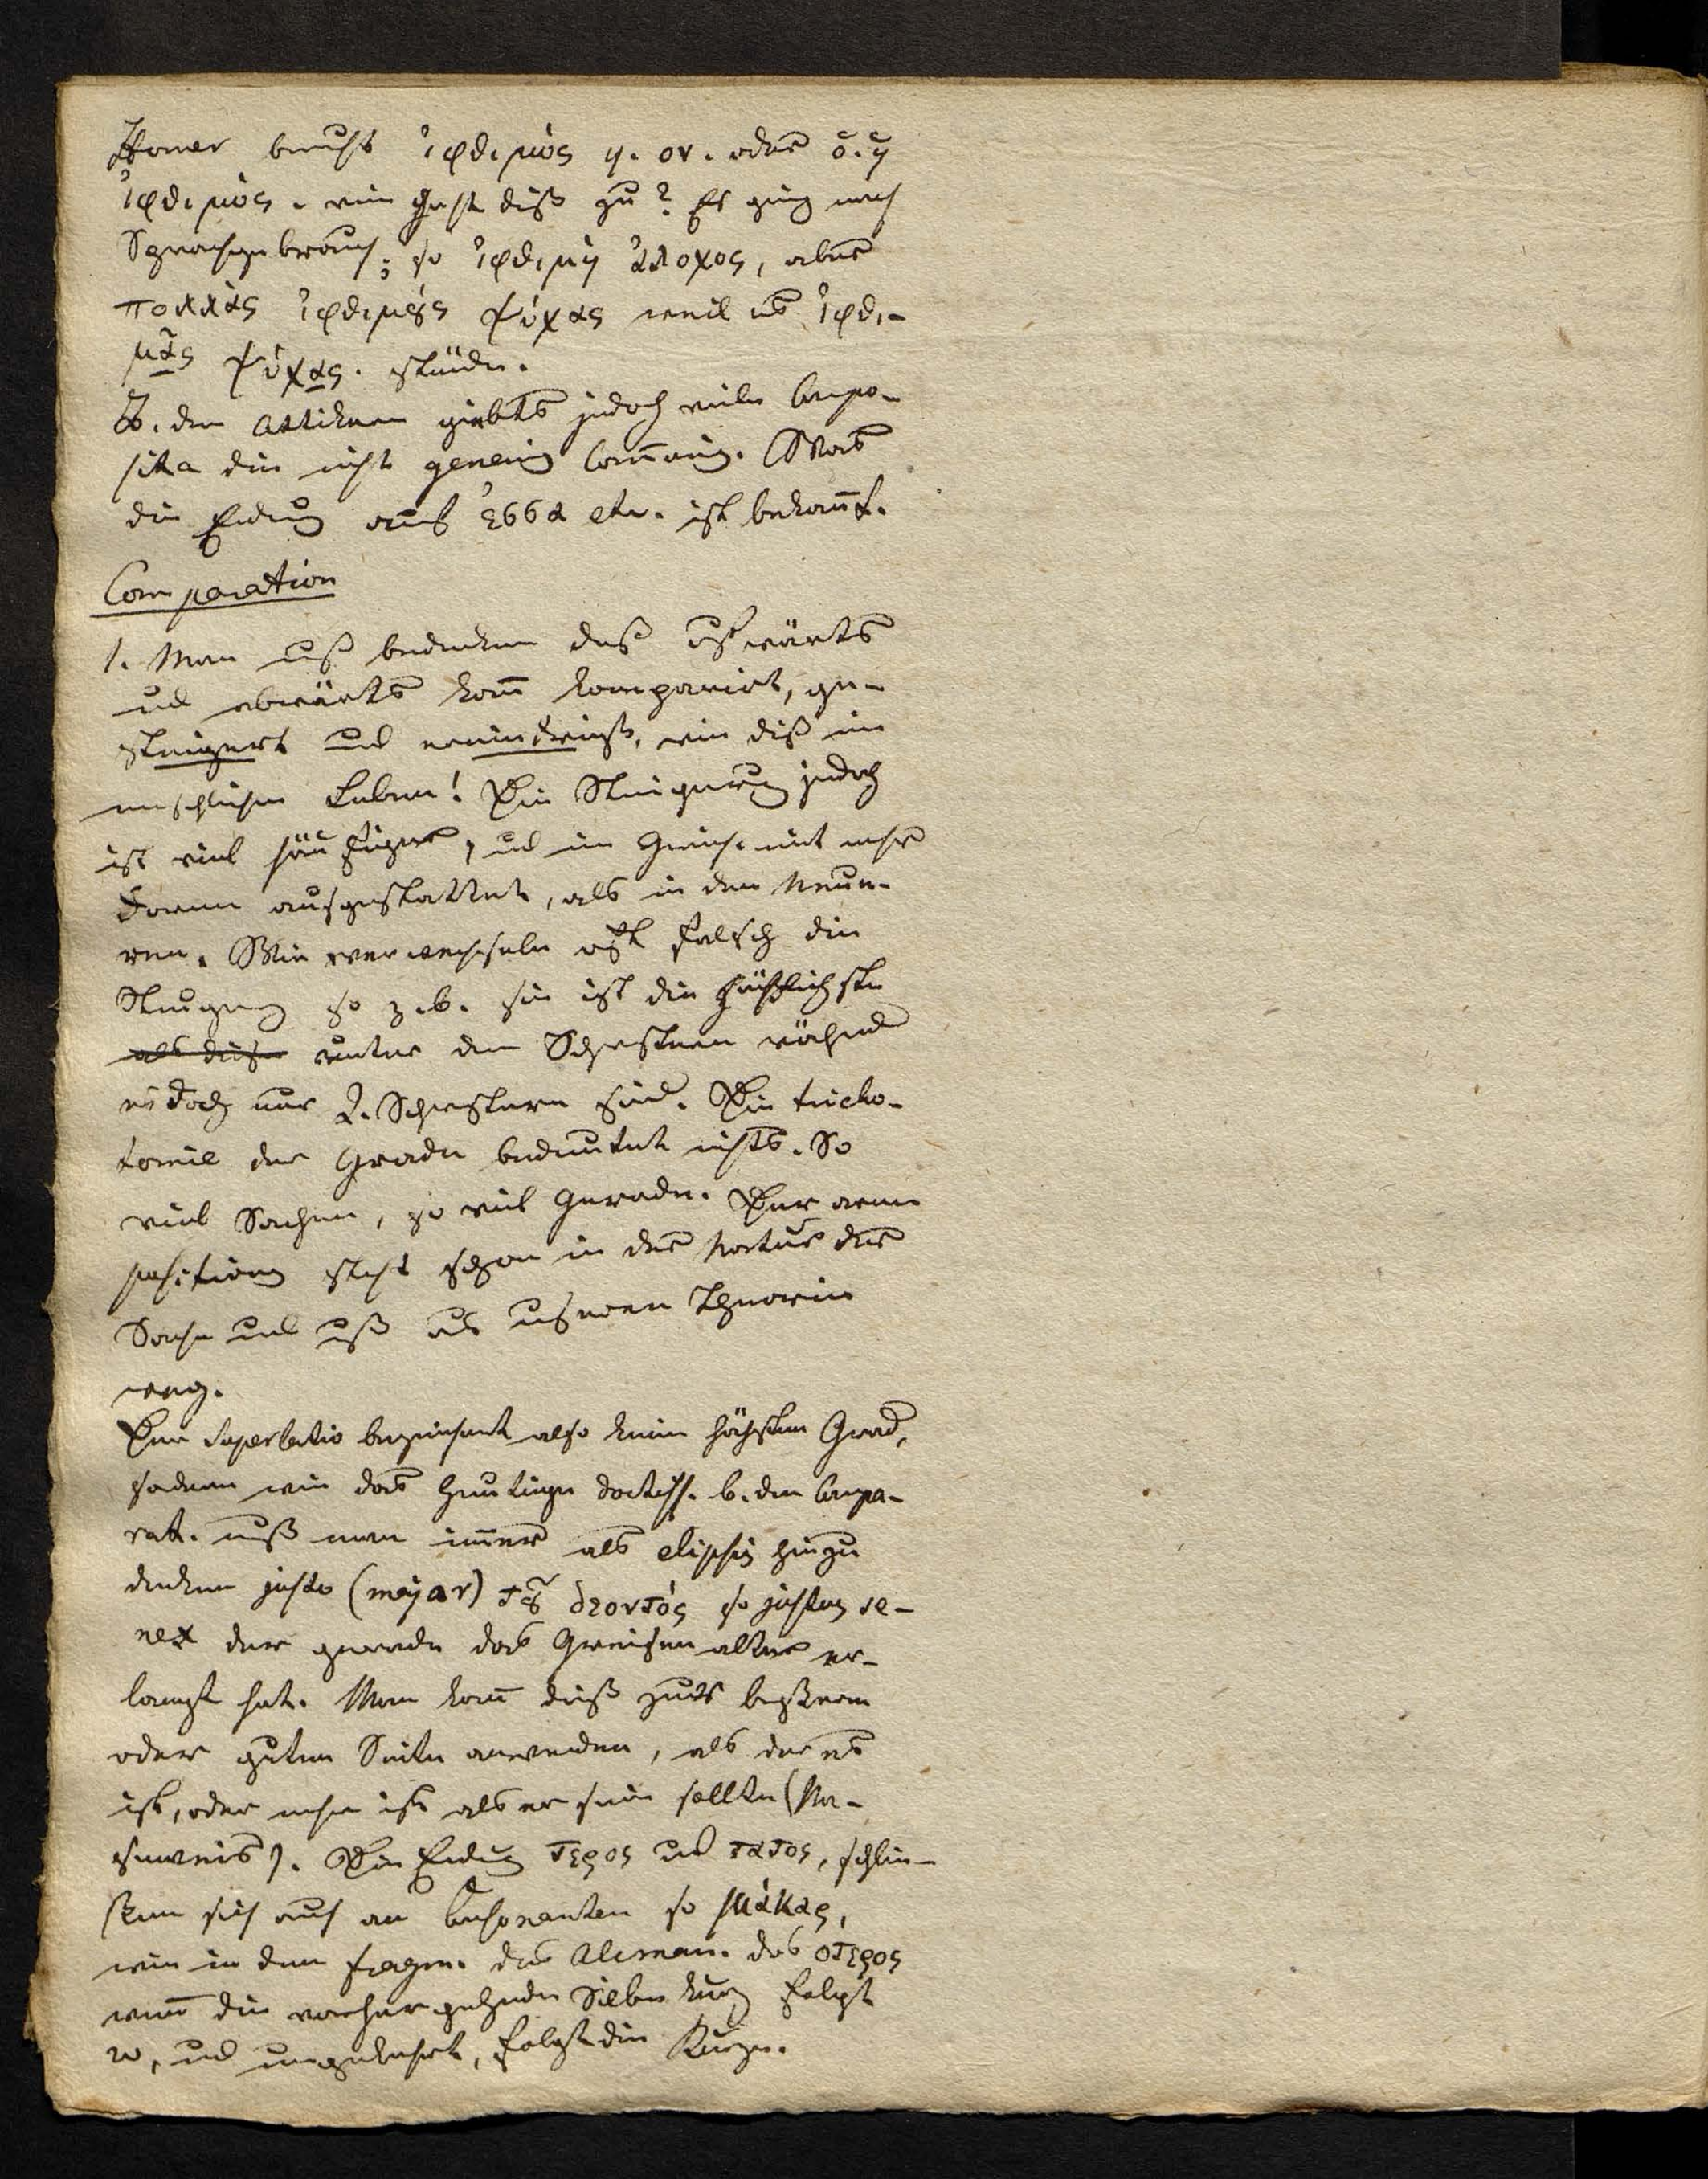 Homer braucht ἰφθιμὸς η. ον. oder ὁ. ἡ
ἰφθιμὸς. wie geht diß zu? Es ging nach
Sprachgebrauch; so ἰφθιμὴ ἄλοχος, aber
πολλὰς ἰφθιμȣς ψύχας weil es ἰφθι-
μὰς ψύχας. stünde.
B. den Attikern giebts jedoch viele Compo-
sita die nicht generis com̅unis. Was
die Endung auf εσσα etc. ist bekan̅t.
Comparation
1. Man muß bedenken daß aufwärts
und abwärts kan̅ komparirt, ge-
steigert und vermindert, wie diß im
menschlichen Leben! Die Steigerung jedoch
ist viel häufiger, und im Griech. mit mehr
Formen ausgestattet, als in den Neue-
ren. Wir verwechseln oft falsch die
Steigerung so z. b. sie ist die häßlichste
als diese unter den Schwestern während
es doch nur 2. Schwestern sind. Die tricho-
tomie der Grade bedeutet nichts. So
viel Sachen, so viel Gerade. Der
positivus steht schon in der Natur der
Sache und muß aus unseren Theorien
weg.
Der Superlativ bezeichnet also keinen höchsten Grad,
sondern wie das heutige doctiss. b. den Compa-
rat. muß man im̅er als eliptisch hinzu
denken justo (major) τȣ δεοντός so justus se-
nex der gerade das Greisenalter er-
langt hat. Man kan̅ dieß zur besseren
oder guten Seite anwenden, als der es
ist, oder mehr ist als er sein sollte (Na-
seweis). Die Endung τερος und τατος, schlie-
ßen sich auch an Consonanten so μάκας,
wie in den fragm. des Alcman. das οτερος
wen̅ die vorhergehende Silbe kurz folgt
ω, und umgekehrt, folgt die Kürze.